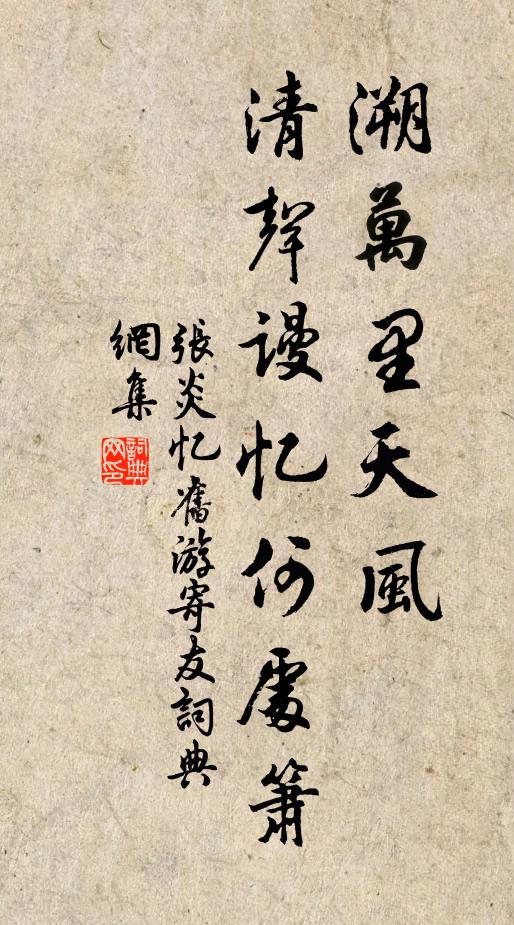 溯萬里天風
清聲谩忆何處簫
張炎忆舊游寄友詞典
網集
詞典网印